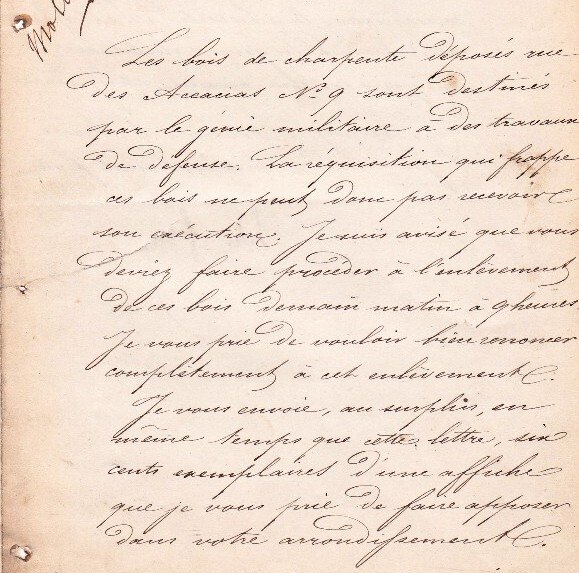 Les bois de charpente déposés rue
des Accacias No 9 sont destinés
par le génie militaire à des travaux
de defense. La réquisition qui frappe
ces bois ne peut donc pas recevoir
son exécution. Je suis avisé que vous
deviez faire procéder à l'enlèvement
de ces bois demain matin à 9 heures
Je vous prie de vouloir bien renoncer
complètement à cet enlèvement.
Je vous envoie, au surplus, en
même temps que cette lettre, six
cents exemplaires d'une affiche
que je vous prie de faire apposer
dans votre arrondissement.